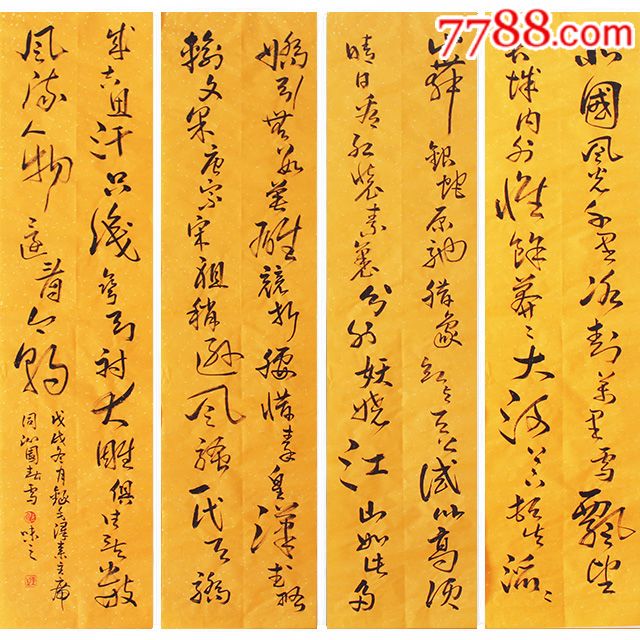 7788.com
北國風光千里冰封萬里雪飄望
長城内外惟餘莽〻大河上下頓失滔〻
山舞銀蛇原馳臘象欲与天公試比高須
晴日看紅裝素裹分外妖嬈江山如此多
嬌引無數英雄競折腰惜秦皇漢武略
輸文采唐宗宋祖稍遜風騷一代天驕
成吉思汗只識彎弓射大雕俱往矣數
風流人物還看今朝
戊戌冬月錄毛澤東主席
詞沁園春雪 味之